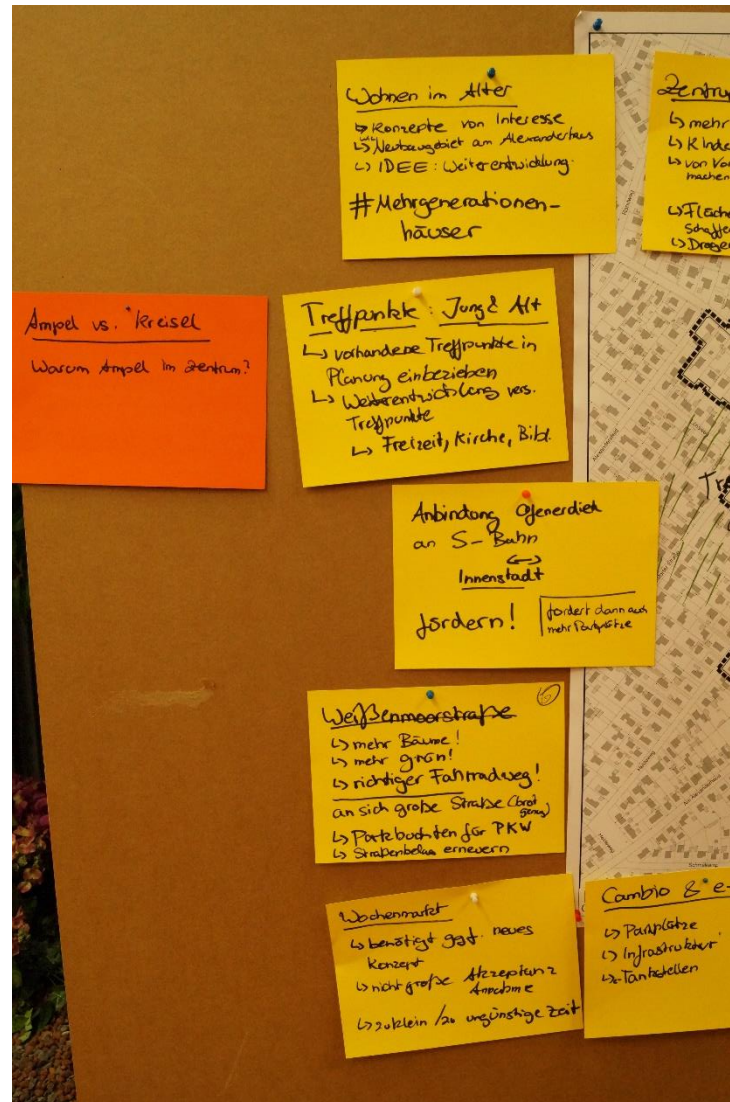 Wohnen im Alter
↳ Konzepte von Interesse
↳ Neubaugebiet am Alexanderhaus
↳ IDEE: Weiterentwicklung
#Mehrgenerationen-
häuser
Zentru
↳ mehr
↳ Kinde
↳ von Vor
machen
↳ Fläche
schaffen
↳ Droger
Ampel vs. Kreisel
Warum Ampel im Zentrum?
Treffpunkte: Jung & Alt
↳ vorhandene Treffpunkte in
Planung einbeziehen
↳ Weiterentwicklung vers.
Treffpunkte
↳ Freizeit, Kirche, Bibl.
Tre
Anbindung Ofenerdiek
an S-Bahn
↔
Innenstadt
fördern!
fordert dann auch
mehr Parkplätze
Weißenmoorstraße
6
↳ mehr Bäume!
↳ mehr grün!
↳ richtiger Fahrradweg!
an sich große Straße (breit
genug)
↳ Parkbuchten für PKW
↳ Straßenbelag erneuern
Wochenmarkt
↳ benötigt ggf. neues
Konzept
↳ nicht große Akzeptanz
Annahme
↳ zu klein / zu ungünstige Zeit
Cambio & e-
↳ Parkplätze
↳ Infrastruktur
↳ Tankstellen